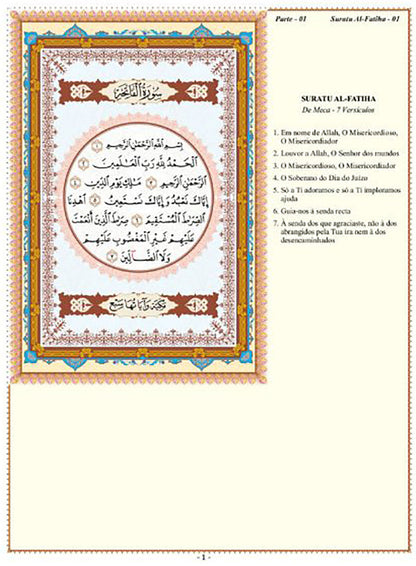 Parte - 01 Suratu Al-Fatiha - 01
سورة الفاتحة
بسم الله الرحمن الرحيم ١
الحمد لله رب العلمين ٢
الرحمن الرحيم ٣ ملك يوم الدين ٤
إياك نعبد وإياك نستعين ٥ اهدنا
الصرط المستقيم ٦ صرط الذين أنعمت
عليهم غير المغضوب عليهم
ولا الضالين ٧
مكية وآياتها سبع
SURATU AL-FATIHA
De Meca - 7 Versículos
1. Em nome de Allah, O Misericordioso,
O Misericordiador
2. Louvor a Allah, O Senhor dos mundos
3. O Misericordioso, O Misericordiador
4. O Soberano do Dia do Juízo
5. Só a Ti adoramos e só a Ti imploramos
ajuda
6. Guia-nos à senda reta
7. À senda dos que agraciaste, não à dos
abrangidos pela Tua ira nem à dos
desencaminhados
- 1 -